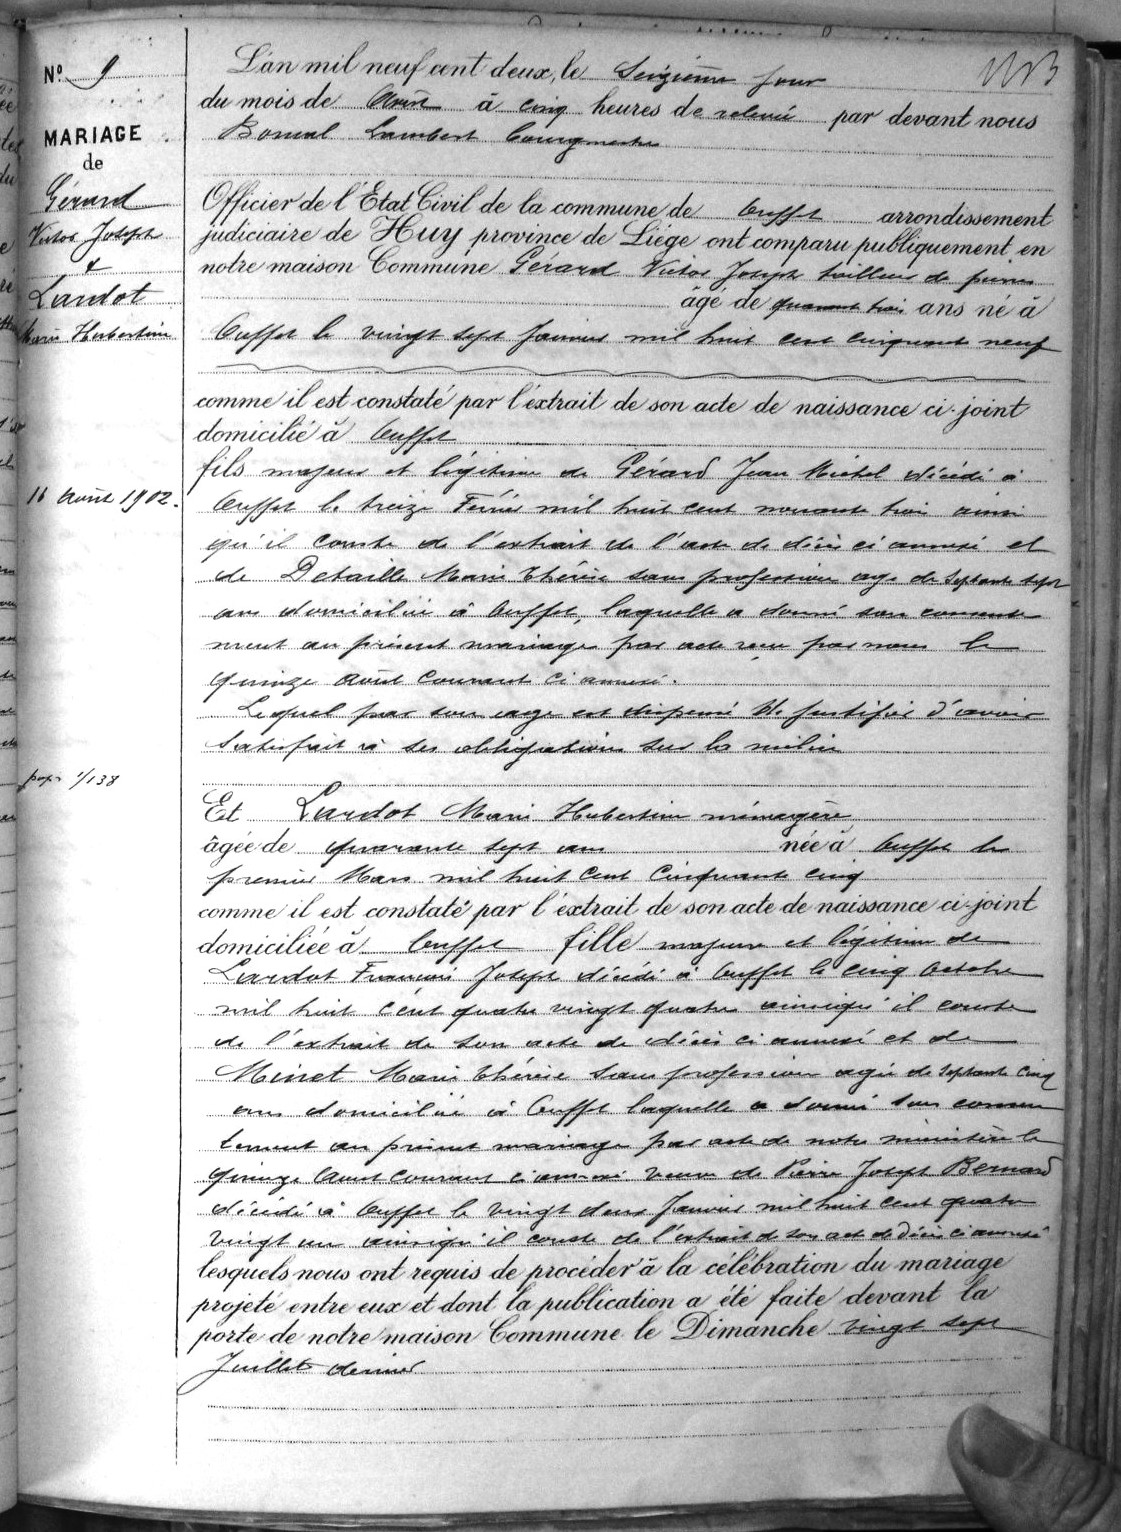 N° 9
MARIAGE
de
Gérard
Victor Joseph
&
Lardot
Marie Hubertine
16 Août 1902.
L'an mil neuf cent deux, le Seizième jour
du mois de Août à cinq heures de relevée par devant nous
Bonmal Lambert Bourgmestre
Officier de l'Etat Civil de la commune de Ouffet arrondissement
judiciaire de Huy province de Liége ont comparu publiquement en
notre maison Commune Gérard Victor Joseph tailleur de pierres
âgé de quarante trois ans né à
Ouffet le vingt sept Janvier mil huit cent cinquante neuf
comme il est constaté par l'extrait de son acte de naissance ci-joint
domicilié à Ouffet
fils majeur et légitime de Gérard Jean Michel décédé à
Ouffet le treize Février mil huit cent nonante trois ainsi
qu'il conste de l'extrait de l'acte de décès ci annexé et
de Detaille Marie Thérèse sans profession agé de septante sept
ans domiciliée à Ouffet, laquelle a donné son consente
ment au présent mariage par acte reçu par nous le
quinze août courant ci annexé.
Lequel par son age est dispensé de justifier d'avoir
satisfait à ses obligations sur la milice
Et Lardot Marie Hubertine ménagère
âgée de quarante sept ans née à Ouffet le
premier Mars mil huit cent cinquante cinq
comme il est constaté par l'extrait de son acte de naissance ci-joint
domiciliée à Ouffet fille majeure et légitime de
Lardot François Joseph décédé à Ouffet le cinq Octobre
mil huit cent quatre vingt quatre ainsiqu'il conste
de l'extrait de son acte de décès ci annexé et de
Minet Marie Thérèse sans profession agée de septante cinq
ans domiciliée à Ouffet laquelle a donné son consen
tement au présent mariage par acte de notre ministère le
quinze Aout courant ci annexé veuve de Pierre Joseph Bernard
décédé à Ouffet le vingt deux Janvier mil huit cent quatre
vingt un ainsiqu'il conste de l'extrait de son acte de Décès ci annexé
lesquels nous ont requis de procéder à la célébration du mariage
projeté entre eux et dont la publication a été faite devant la
porte de notre maison Commune le Dimanche vingt sept
Juillet dernier